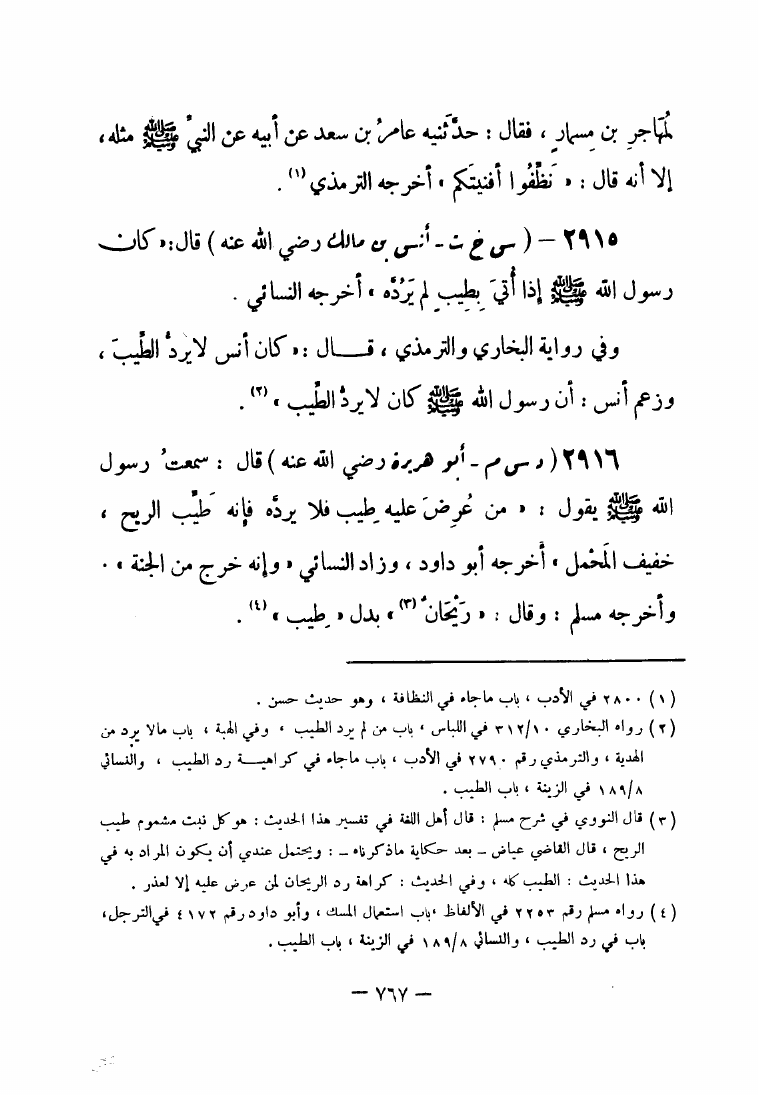 لمُهَاجرِ بن مِسمارٍ ، فقال : حدَّثنيه عامرُ بن سعد عن أبيه عن النبيِّ ﷺ مثله،
إلا أنه قال : « نَظِّفُوا أفنيتَكم » أخرجه الترمذي (١) .
٢٩١٥ – ( س خ ت - أنس بن مالك رضي الله عنه ) قال:« كان
رسول الله ﷺ إذا أُتيَ بِطِيبٍ لم يَرُدَّه » أخرجه النسائي .
وفي رواية البخاري والترمذي ، قـــال :« كان أنس لا يَردُّ الطِّيبَ ،
وزعم أنس : أن رسول الله ﷺ كان لا يردُّ الطِّيب » (٢) .
٢٩١٦ ( د س م - أبو هريرة رضي الله عنه ) قال : سمعتُ رسول
الله ﷺ يقول : « من عُرِضَ عليه طِيب فلا يردَّه فإنه طَيِّب الريح ،
خفيف المَحْمل » أخرجه أبو داود ، وزاد النسائي « وإنه خرج من الجنة » .
وأخرجه مسلم : وقال : « رَيْحَانٌ (٣) » بدل « طِيب » (٤) .
(١) ٢٨٠٠ في الأدب ، باب ماجاء في النظافة ، وهو حديث حسن .
(٢) رواه البخاري ٣١٢/١٠ في اللباس ، باب من لم يرد الطيب ، وفي الهبة ، باب مالا يرد من
الهدية ، والترمذي رقم ٢٧٩٠ في الأدب ، باب ماجاء في كراهيــة رد الطيب ، والنسائي
١٨٩/٨ في الزينة ، باب الطيب .
(٣) قال النووي في شرح مسلم : قال أهل اللغة في تفسير هذا الحديث : هو كل نبت مشموم طيب
الريح ، قال القاضي عياض – بعد حكاية ماذكرناه – : ويحتمل عندي أن يكون المراد به في
هذا الحديث : الطيب كله ، وفي الحديث : كراهة رد الريحان لمن عرض عليه إلا لعذر .
(٤) رواه مسلم رقم ٢٢٥٣ في الألفاظ ،باب استعمال المسك ، وأبو داود رقم ٤١٧٢ في الترجل،
باب في رد الطيب ، والنسائي ١٨٩/٨ في الزينة ، باب الطيب .
– ٧٦٧ –